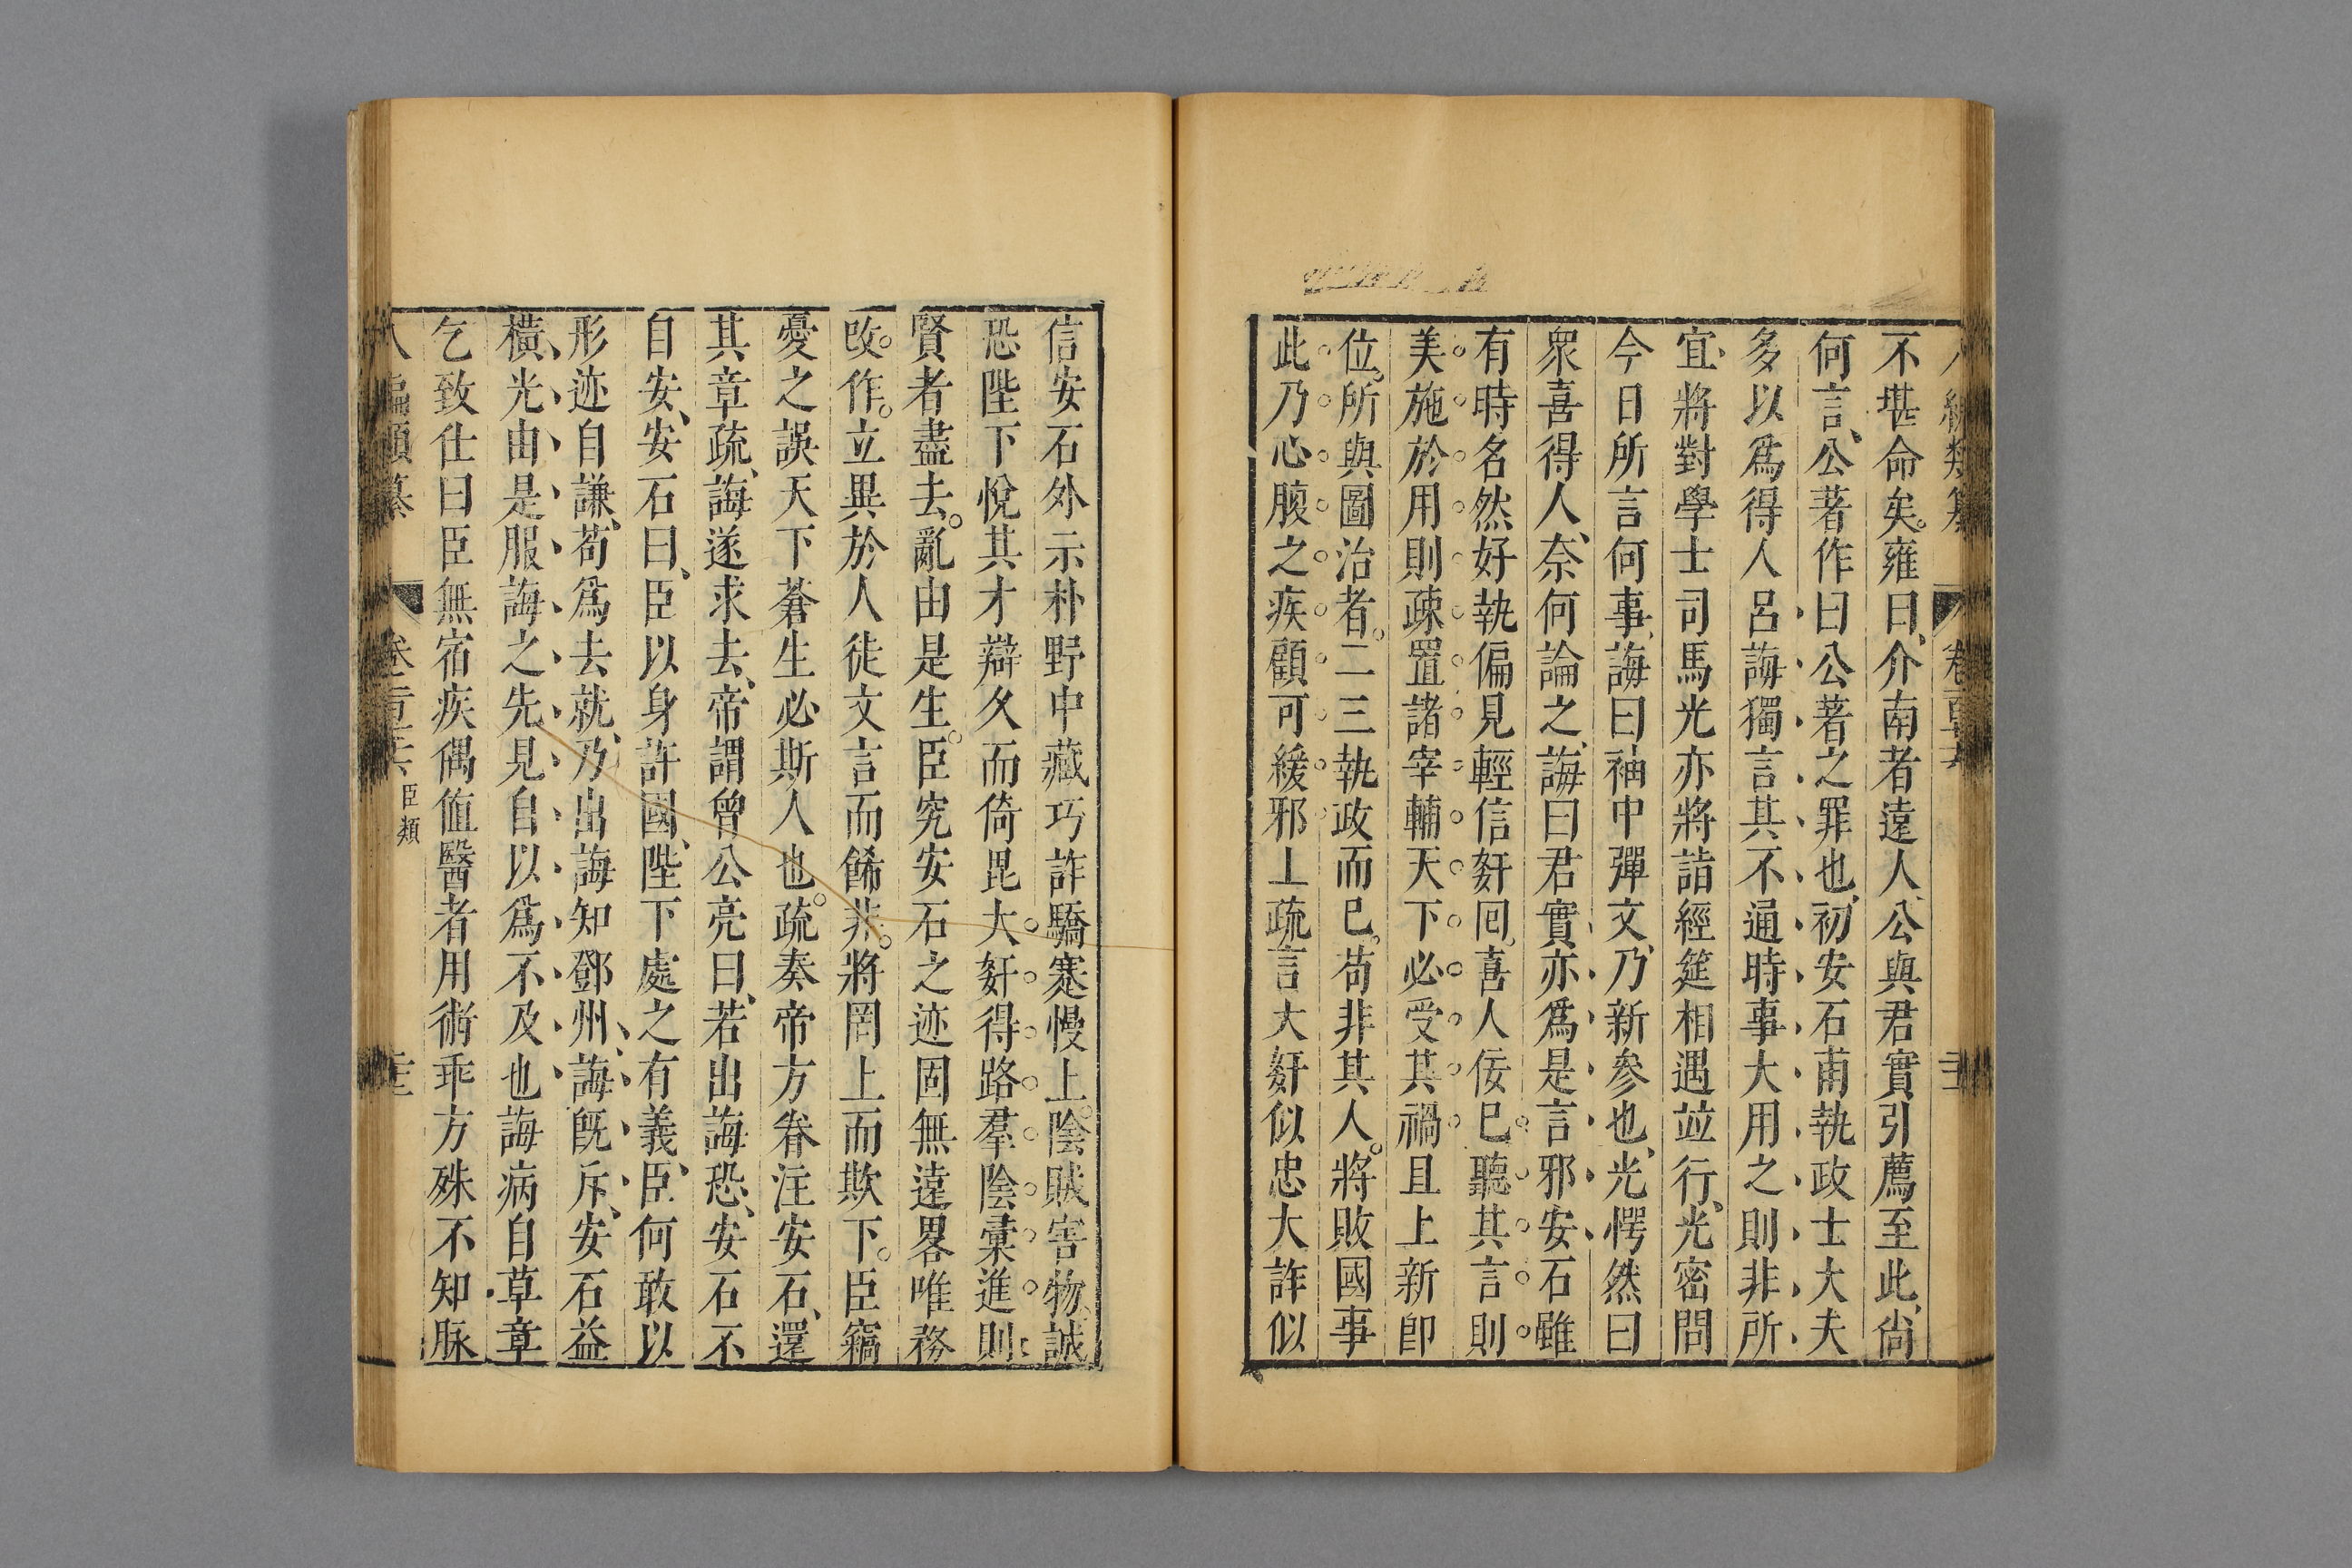 不堪命矣雍曰介南者遠人公與君實引薦至此尙
何言公著作曰公著之罪也初安石甫執政士大夫
多以爲得人呂誨獨言其不通時事大用之則非所
宜將對學士司馬光亦將詣經筵相遇竝行光密問
今日所言何事誨曰袖中彈文乃新參也光愕然曰
衆喜得人奈何論之誨曰君實亦爲是言邪安石雖
有時名然好執偏見輕信姧囘喜人佞巳聽其言則
美施於用則疎置諸宰輔天下必受其禍且上新卽
位所與圖治者二三執政而巳苟非其人將敗國事
此乃心腹之疾顧可緩邪上疏言大姧似忠大詐似
信安石外示朴野中藏巧詐驕蹇慢上陰賊害物誠
恐陛下悅其才辯久而倚毘大姧得路羣陰彙進則
賢者盡去亂由是生臣究安石之迹固無遠畧唯務
改作立異於人徒文言而餙非將罔上而欺下臣竊
憂之誤天下蒼生必斯人也疏奏帝方眷注安石還
其章疏誨遂求去帝謂曾公亮曰若出誨恐安石不
自安安石曰臣以身許國陛下處之有義臣何敢以
形迹自謙苟爲去就乃出誨知鄧州誨旣斥安石益
橫光由是服誨之先見自以爲不及也誨病自草章
乞致仕曰臣無宿疾偶値醫者用術乖方殊不知脉
臣類